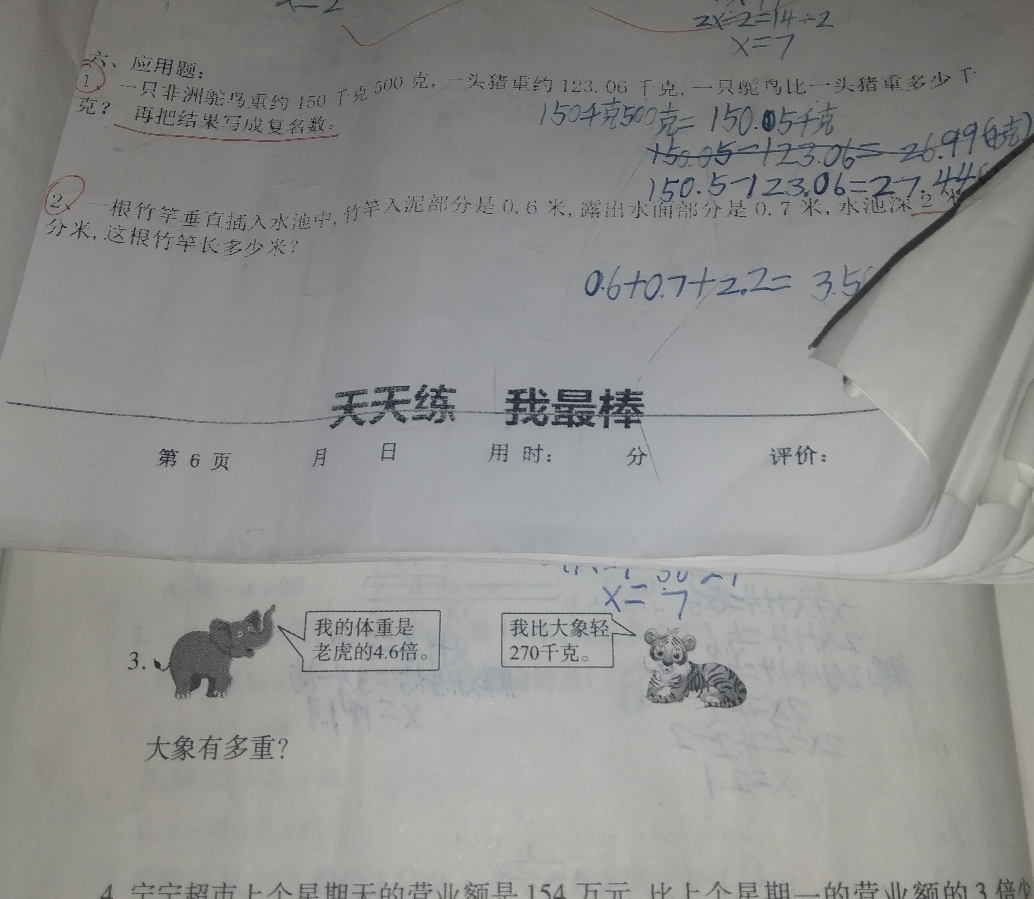 x=2
2x÷2=14÷2
x=7
六、应用题：
1、一只非洲鸵鸟重约150千克500克，一头猪重约123.06千克，一只鸵鸟比一头猪重多少千
克？再把结果写成复名数。
150千克500克=150.05千克
150.05-123.06=26.99(千克)
150.5-123.06=27.44
2、一根竹竿垂直插入水池中，竹竿入泥部分是0.6米，露出水面部分是0.7米，水池深2米
分米，这根竹竿长多少米？
0.6+0.7+2.2=3.5
天天练 我最棒
第6页 月 日 用时： 分 评价：
x=7
3.
我的体重是
老虎的4.6倍。
我比大象轻
270千克。
大象有多重？
4.宁宁超市上个星期天的营业额是154万元，比上个星期一的营业额的3倍少